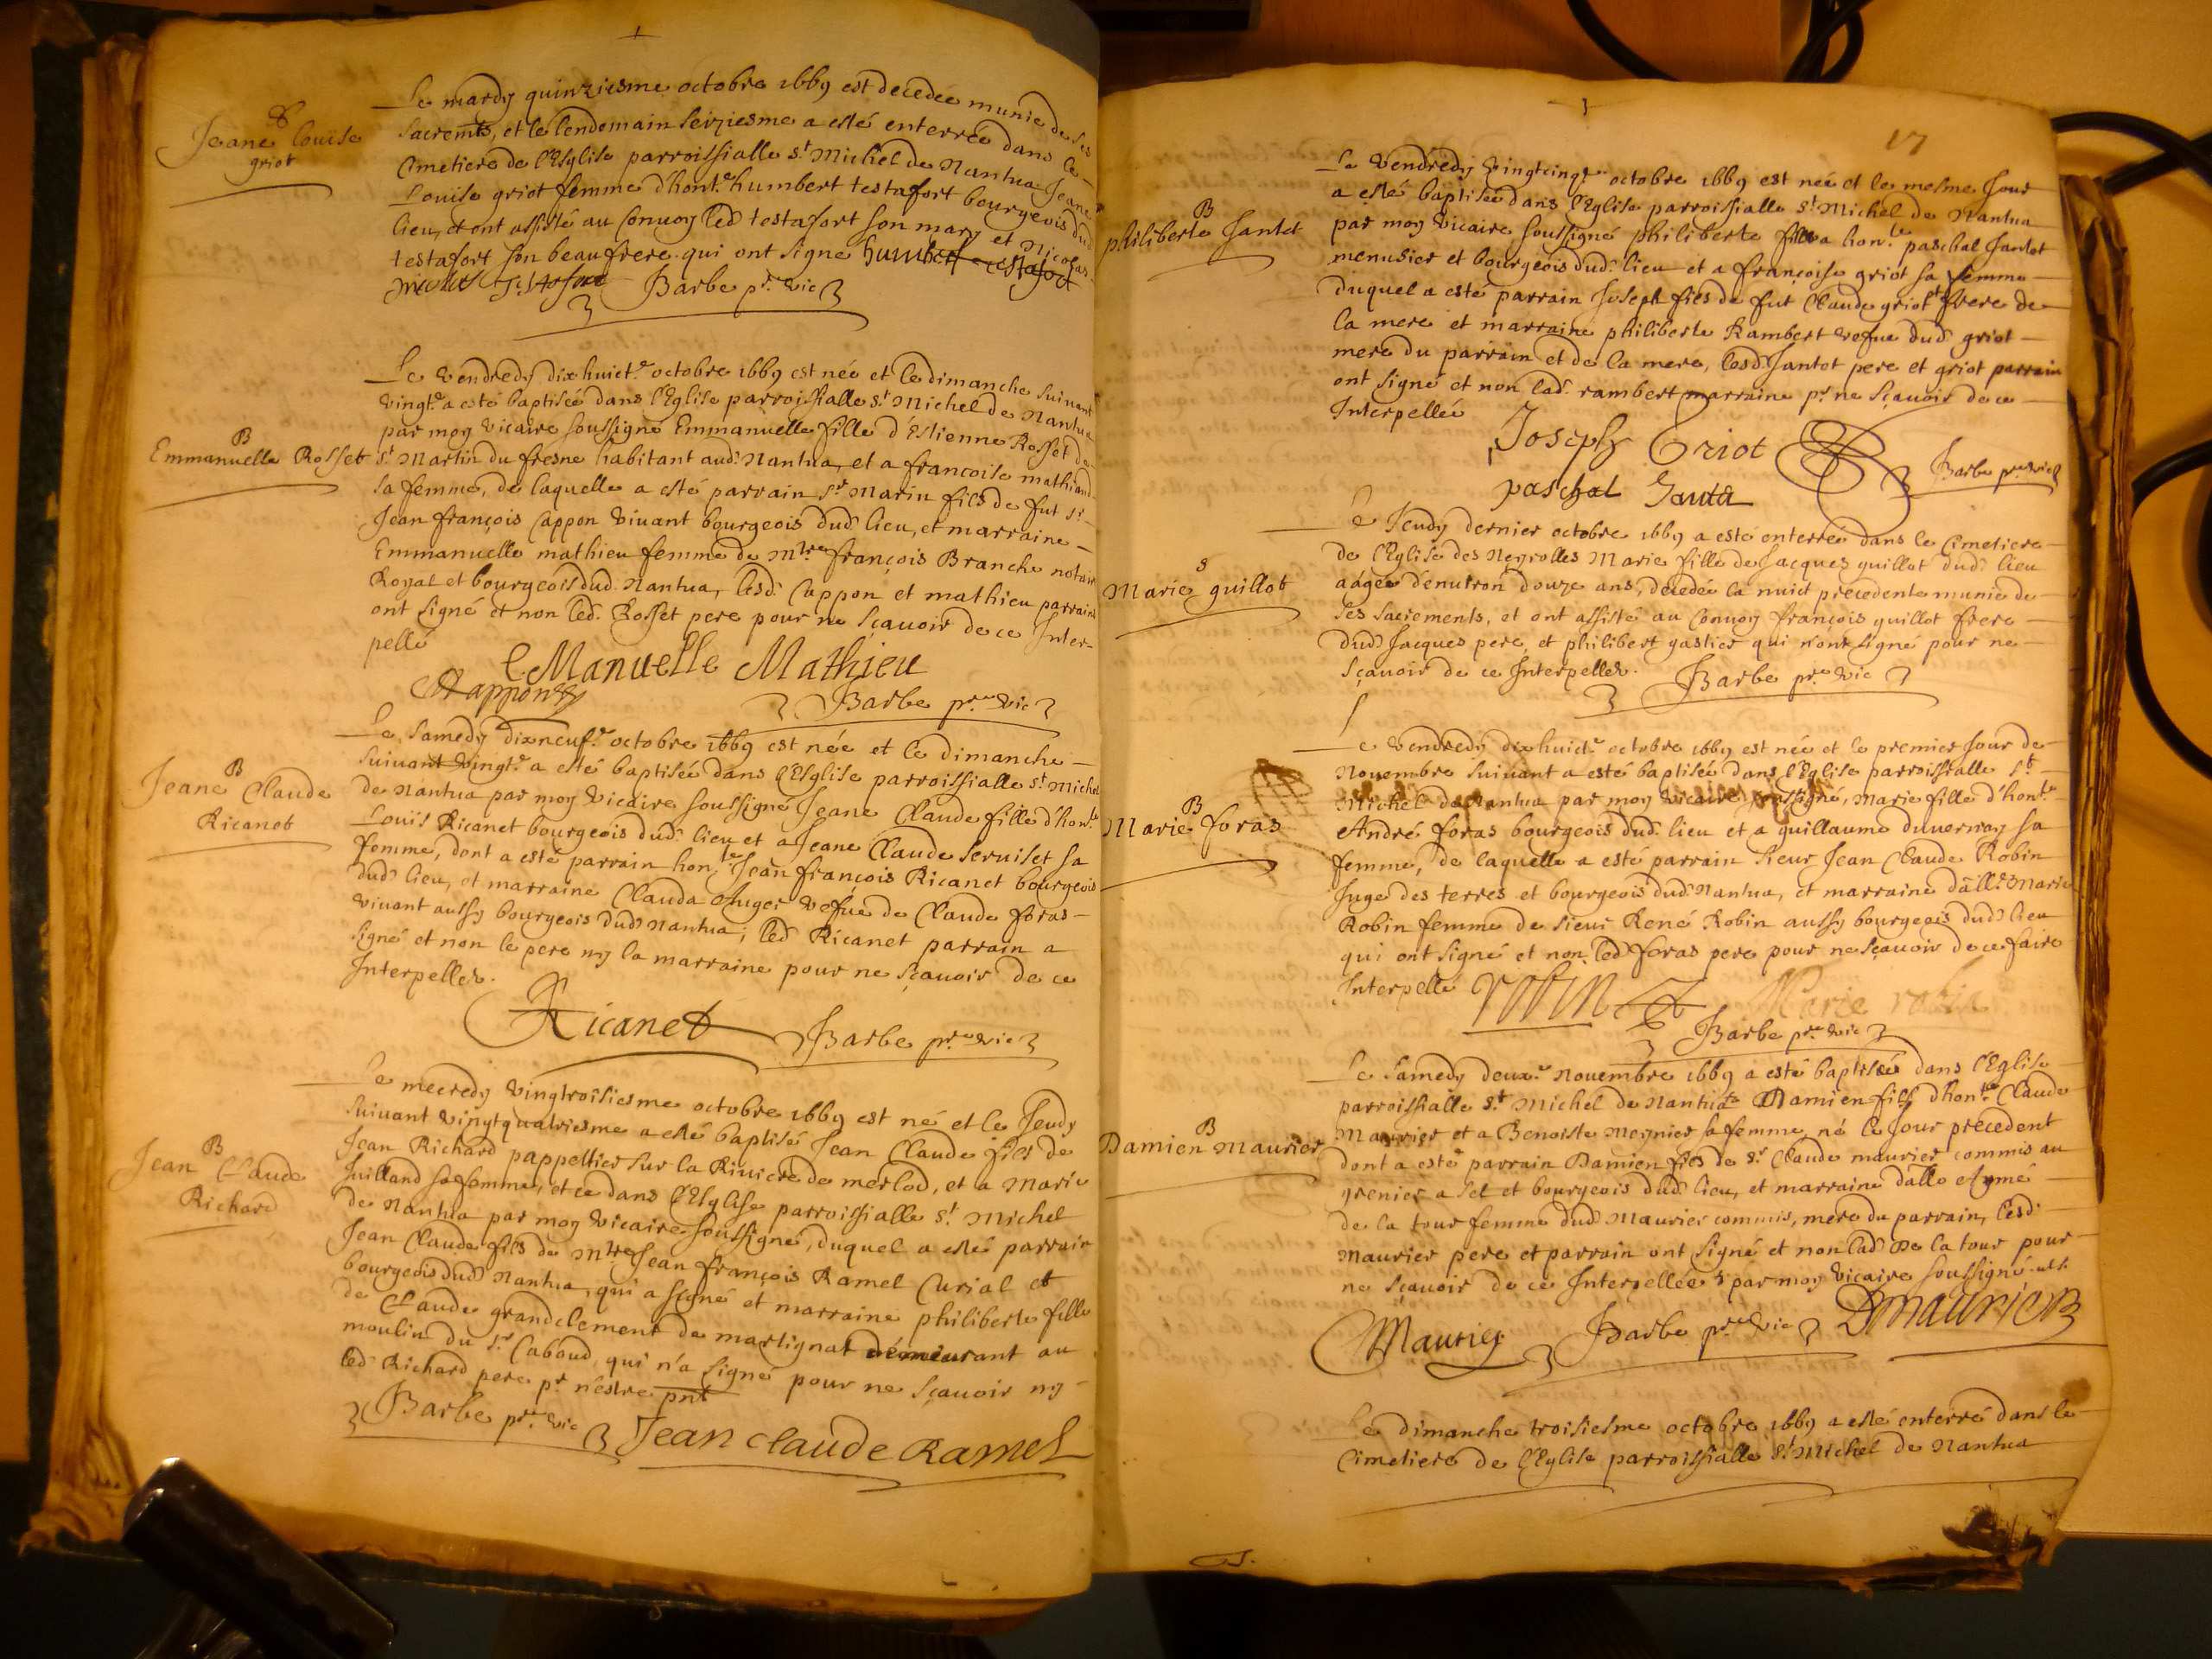 S
Jeane Louise
griot
Le mardy quinziesme octobre 1669 est decedée munie de ses
sacremts, et le lendemain seiziesme a esté enterrée dans le
Cimetiere de l'Esglise parroissialle St Michel de Nantua Jeane
Louise griot femme d'hont.e humbert testafort bourgeois dud
lieu, et ont assisté au Convoy led testafort son mary et Nicolas
testafort son beaufrere qui ont signé humbert testafort
Barbe pr. vic
B
Emmanuelle Rosset
Le vendredy dixhuict.e octobre 1669 est née et le dimanche suivant
vingt.e a esté baptisée dans l'Eglise parroissialle St Michel de Nantua
par moy vicaire soussigné Emmanuelle fille d'Estienne Rosset de
St Martin du fresne habitant aud. Nantua, et a francoise mathiand
sa femme, de laquelle a esté parrain Sr Marin fils de fut Sr
Jean françois Cappon vivant bourgeois dud. lieu, et marraine
Emmanuelle mathieu femme de Mtre françois Branche notaire
Royal et bourgeois dud. Nantua, lesd. Cappon et mathieu parrains
ont signé et non led. Rosset pere pour ne sçavoir de ce Inter-
pellé
EManuelle Mathieu
Cappon
Barbe pr. vic
B
Jeane Claude
Ricanet
Le samedy dixneuf.e octobre 1669 est née et le dimanche
suivant vingt.e a esté baptisée dans l'Esglise parroissialle St Michel
de Nantua par moy vicaire soussigné Jeane Claude fille d'hon.te
Louis Ricanet bourgeois dud. lieu et a Jeane Claude Serviset sa
femme, dont a esté parrain hon.te Jean françois Ricanet bourgeois
dud lieu, et marraine Clauda Auger vefue de Claude foras
vivant aussy bourgeois dud. Nantua; led Ricanet parrain a
signé et non le pere ny la marraine pour ne sçavoir de ce
Interpellez.
Ricanet
Barbe pr. vic
B
Jean Claude
Richard
Le mecredy vingtroisiesme octobre 1669 est né et le Jeudy
suivant vingtquatriesme a esté baptisé Jean Claude fils de
Jean Richard pappettier sur la Riviere de merlod, et a Marie
Juilland sa femme, et ce dans l'Esglise parroissialle St Michel
de Nantua par moy vicaire soussigné, duquel a esté parrain
Jean Claude fils de Mtre Jean françois Ramel Curial et
bourgeois dud Nantua, qui a signé et marraine philiberte fille
de Claude grandclement de martignat demeurant au
moulin du Sr Caboud, qui n'a signé pour ne sçavoir ny
led Richard pere pr n'estre pnt
Barbe pr. vic
Jean Claude Ramel
17
B
philiberte Jantet
Le vendredy vingtcinq.e octobre 1669 est née et le mesme Jour
a esté baptisée dans l'Eglise parroissialle St Michel de Nantua
par moy vicaire soussigné philiberte fille a hon.te paschal Jantet
menusier et bourgeois dud. lieu et a françoise griot sa femme
duquel a esté parrain Joseph fils de fut Claude griot frere de
la mere et marraine philiberte Rambert vefue dud griot
mere du parrain et de la mere, lesd. Jantot pere et griot parrain
ont signé et non lad. rambert marraine pr ne sçavoir de ce
Interpellée
Joseph Griot
Barbe pr. vic
paschal
S
Marie guillot
Le Jeudy dernier octobre 1669 a esté enterrée dans le Cimetiere
de l'Eglise des Neyrolles Marie fille de Jacques guillot dud. lieu
aágée d'environ douze ans, decedée la nuict precedente munie de
ses sacrements, et ont assisté au Convoy françois guillot frere
dud Jacques pere, et philibert gastier qui n'ont signé pour ne
sçavoir de ce Interpellez.
Barbe pr. vic
B
Marie foras
Le vendredy dixhuict.e octobre 1669 est née et le premier Jour de
Novembre suivant a esté baptisée dans l'Eglise parroissialle St
Michel de Nantua par moy vicaire soussigné, Marie fille d'hont.e
André foras bourgeois dud. lieu et a guillaume duvernay sa
femme, de laquelle a esté parrain sieur Jean Claude Robin
Juge des terres et bourgeois dud. Nantua, et marraine dalle. Marie
Robin femme de sieur René Robin aussy bourgeois dud lieu
qui ont signé et non led foras pere pour ne sçavoir de ce faire
Interpellé
robin
Marie robin
Barbe pr. vic
B
Damien Maurier
Le samedy deux.e Novembre 1669 a esté baptisé dans l'Eglise
parroissialle St Michel de Nantua Damien fils d'hon.te Claude
Maurier et a Benoiste Meynier sa femme, né le Jour precedent
dont a esté parrain Damien fils de Sr Claude maurier commis au
grenier a sel et bourgeois dud. lieu, et marraine dalle Aymé
de la tour femme dud Maurier commis, mere du parrain, lesd.
Maurier pere et parrain ont signé et non lad De la tour pour
ne sçavoir de ce Interpellée par moy vicaire soussigné
Maurier
Barbe pr. vic
DMaurier
Le dimanche troisiesme octobre 1669 a esté enterré dans le
Cimetiere de l'Eglise parroissialle St Michel de Nantua